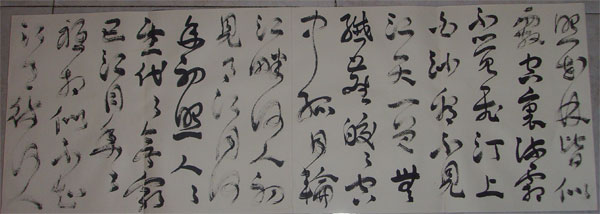 照花林皆似
霰空裏流霜
不覺飛汀上
白沙看不見
江天一色無
纖塵皎々空
中孤月輪
江畔何人初
見月江月何
年初照人々
生代々無窮
已江月年々
祗相似不知
江月待何人